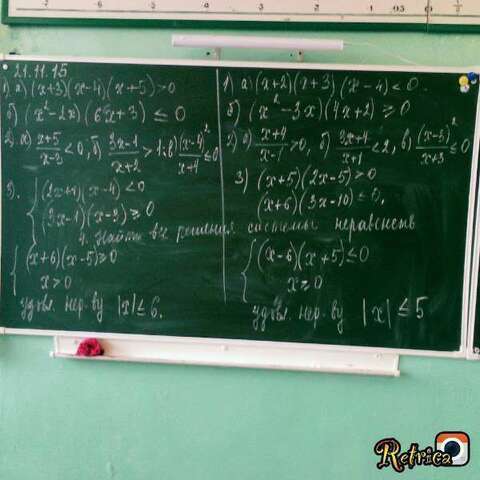 21.11.15
1) а) (x+3)(x-4)(x+5)>0
б) (x²-2x)(6x+3) ≤ 0
2) а) (x+5)/(x-3)<0, б) (3x-1)/(x+2)>1; в) (x-4)²/(x+4)≤0
3). { (2x+4)(x-4)<0
(3x-1)(x-8)≥0
4. Найти все решения системы неравенств
{ (x+6)(x-5)≥0
x>0
удовл. нер-ву |x|≤6.
1) а) (x+2)(x+3)(x-4)<0.
б) (x²-3x)(4x+2)≥0
2) а) (x+4)/(x-7)>0, б) (3x+4)/(x+1)<2, в) (x-5)²/(x+3)≤0
3) (x+5)(2x-5)>0
(x+6)(3x-10)≤0.
{ (x-6)(x+5)≤0
x≥0
удовл. нер-ву |x|≤5
7
9
Retrica